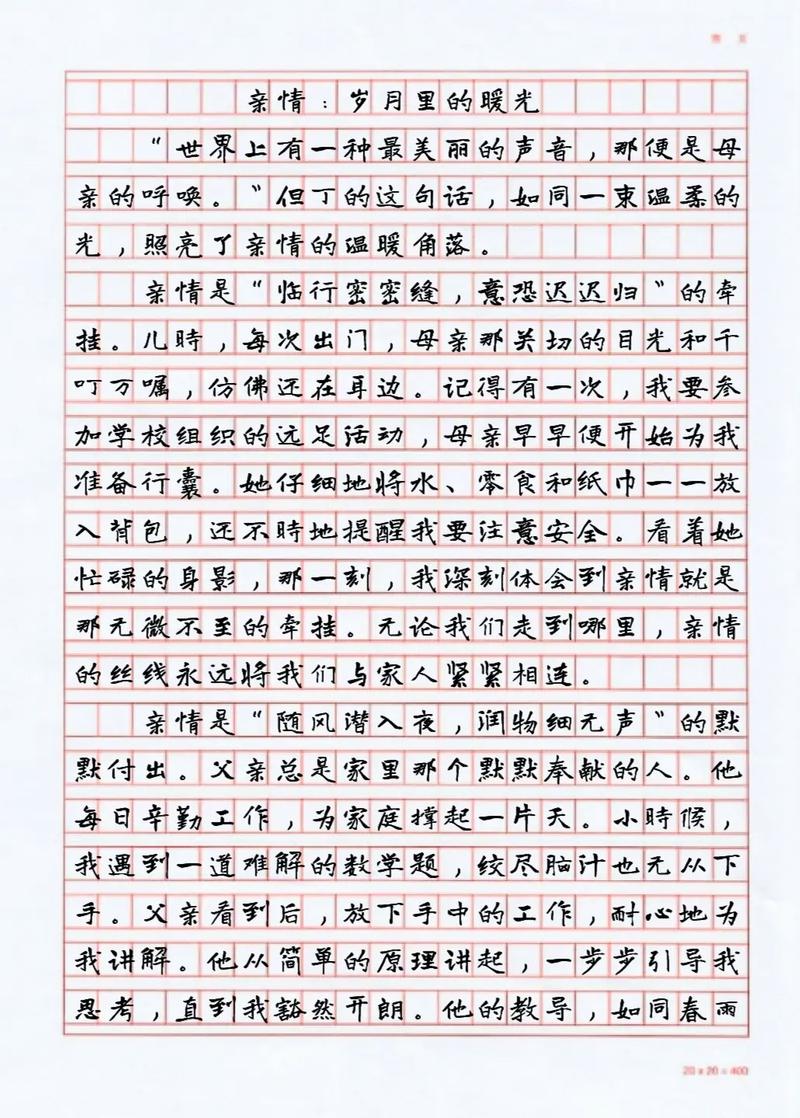 亲情：岁月里的暖光
“世界上有一种最美丽的声音，那便是母
亲的呼唤。”但丁的这句话，如同一束温柔的
光，照亮了亲情的温暖角落。
亲情是“临行密密缝，意恐迟迟归”的牵
挂。儿時，每次出门，母亲那关切的目光和千
叮万嘱，仿佛还在耳边。记得有一次，我要参
加学校组织的远足活动，母亲早早便开始为我
准备行囊。她仔细地将水、零食和纸巾一一放
入背包，还不時地提醒我要注意安全。看着她
忙碌的身影，那一刻，我深刻体会到亲情就是
那无微不至的牵挂。无论我们走到哪里，亲情
的丝线永远将我们与家人紧紧相连。
亲情是“随风潜入夜，润物细无声”的默
默付出。父亲总是家里那个默默奉献的人。他
每日辛勤工作，为家庭撑起一片天。小時候，
我遇到一道难解的数学题，绞尽脑汁也无从下
手。父亲看到后，放下手中的工作，耐心地为
我讲解。他从简单的原理讲起，一步步引导我
思考，直到我豁然开朗。他的教导，如同春雨
20×20=400